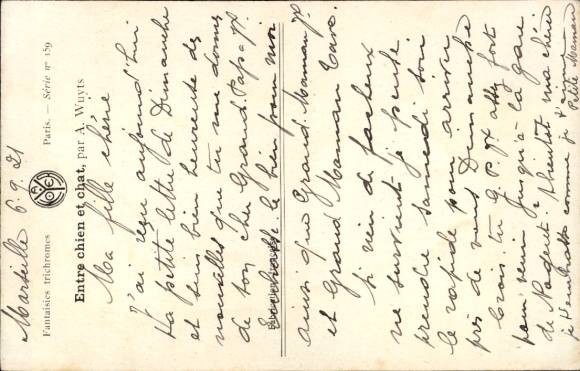 Marseille 6.9.21
Fantaisies trichromes
Paris. — Série nº 159
Entre chien et chat, par A. Wuyts
Ma fille chérie
J'ai reçu aujourd'hui
ta petite lettre de Dimanche
et suis bien heureuse des
nouvelles que tu me donnes
de ton cher Grand. Papa
Embrasse le bien pour moi
ainsi que Grand. Maman
et Grand Maman
Si rien de facheux
ne survient je pense
prendre samedi soir
le rapide pour arriver
près de vous Dimanche
Crois tu G. P. assez fort
pour venir jusqu'à la gare
de Nogent? A bientôt ma chérie
je t'embrasse comme je t'aime
Petite Maman